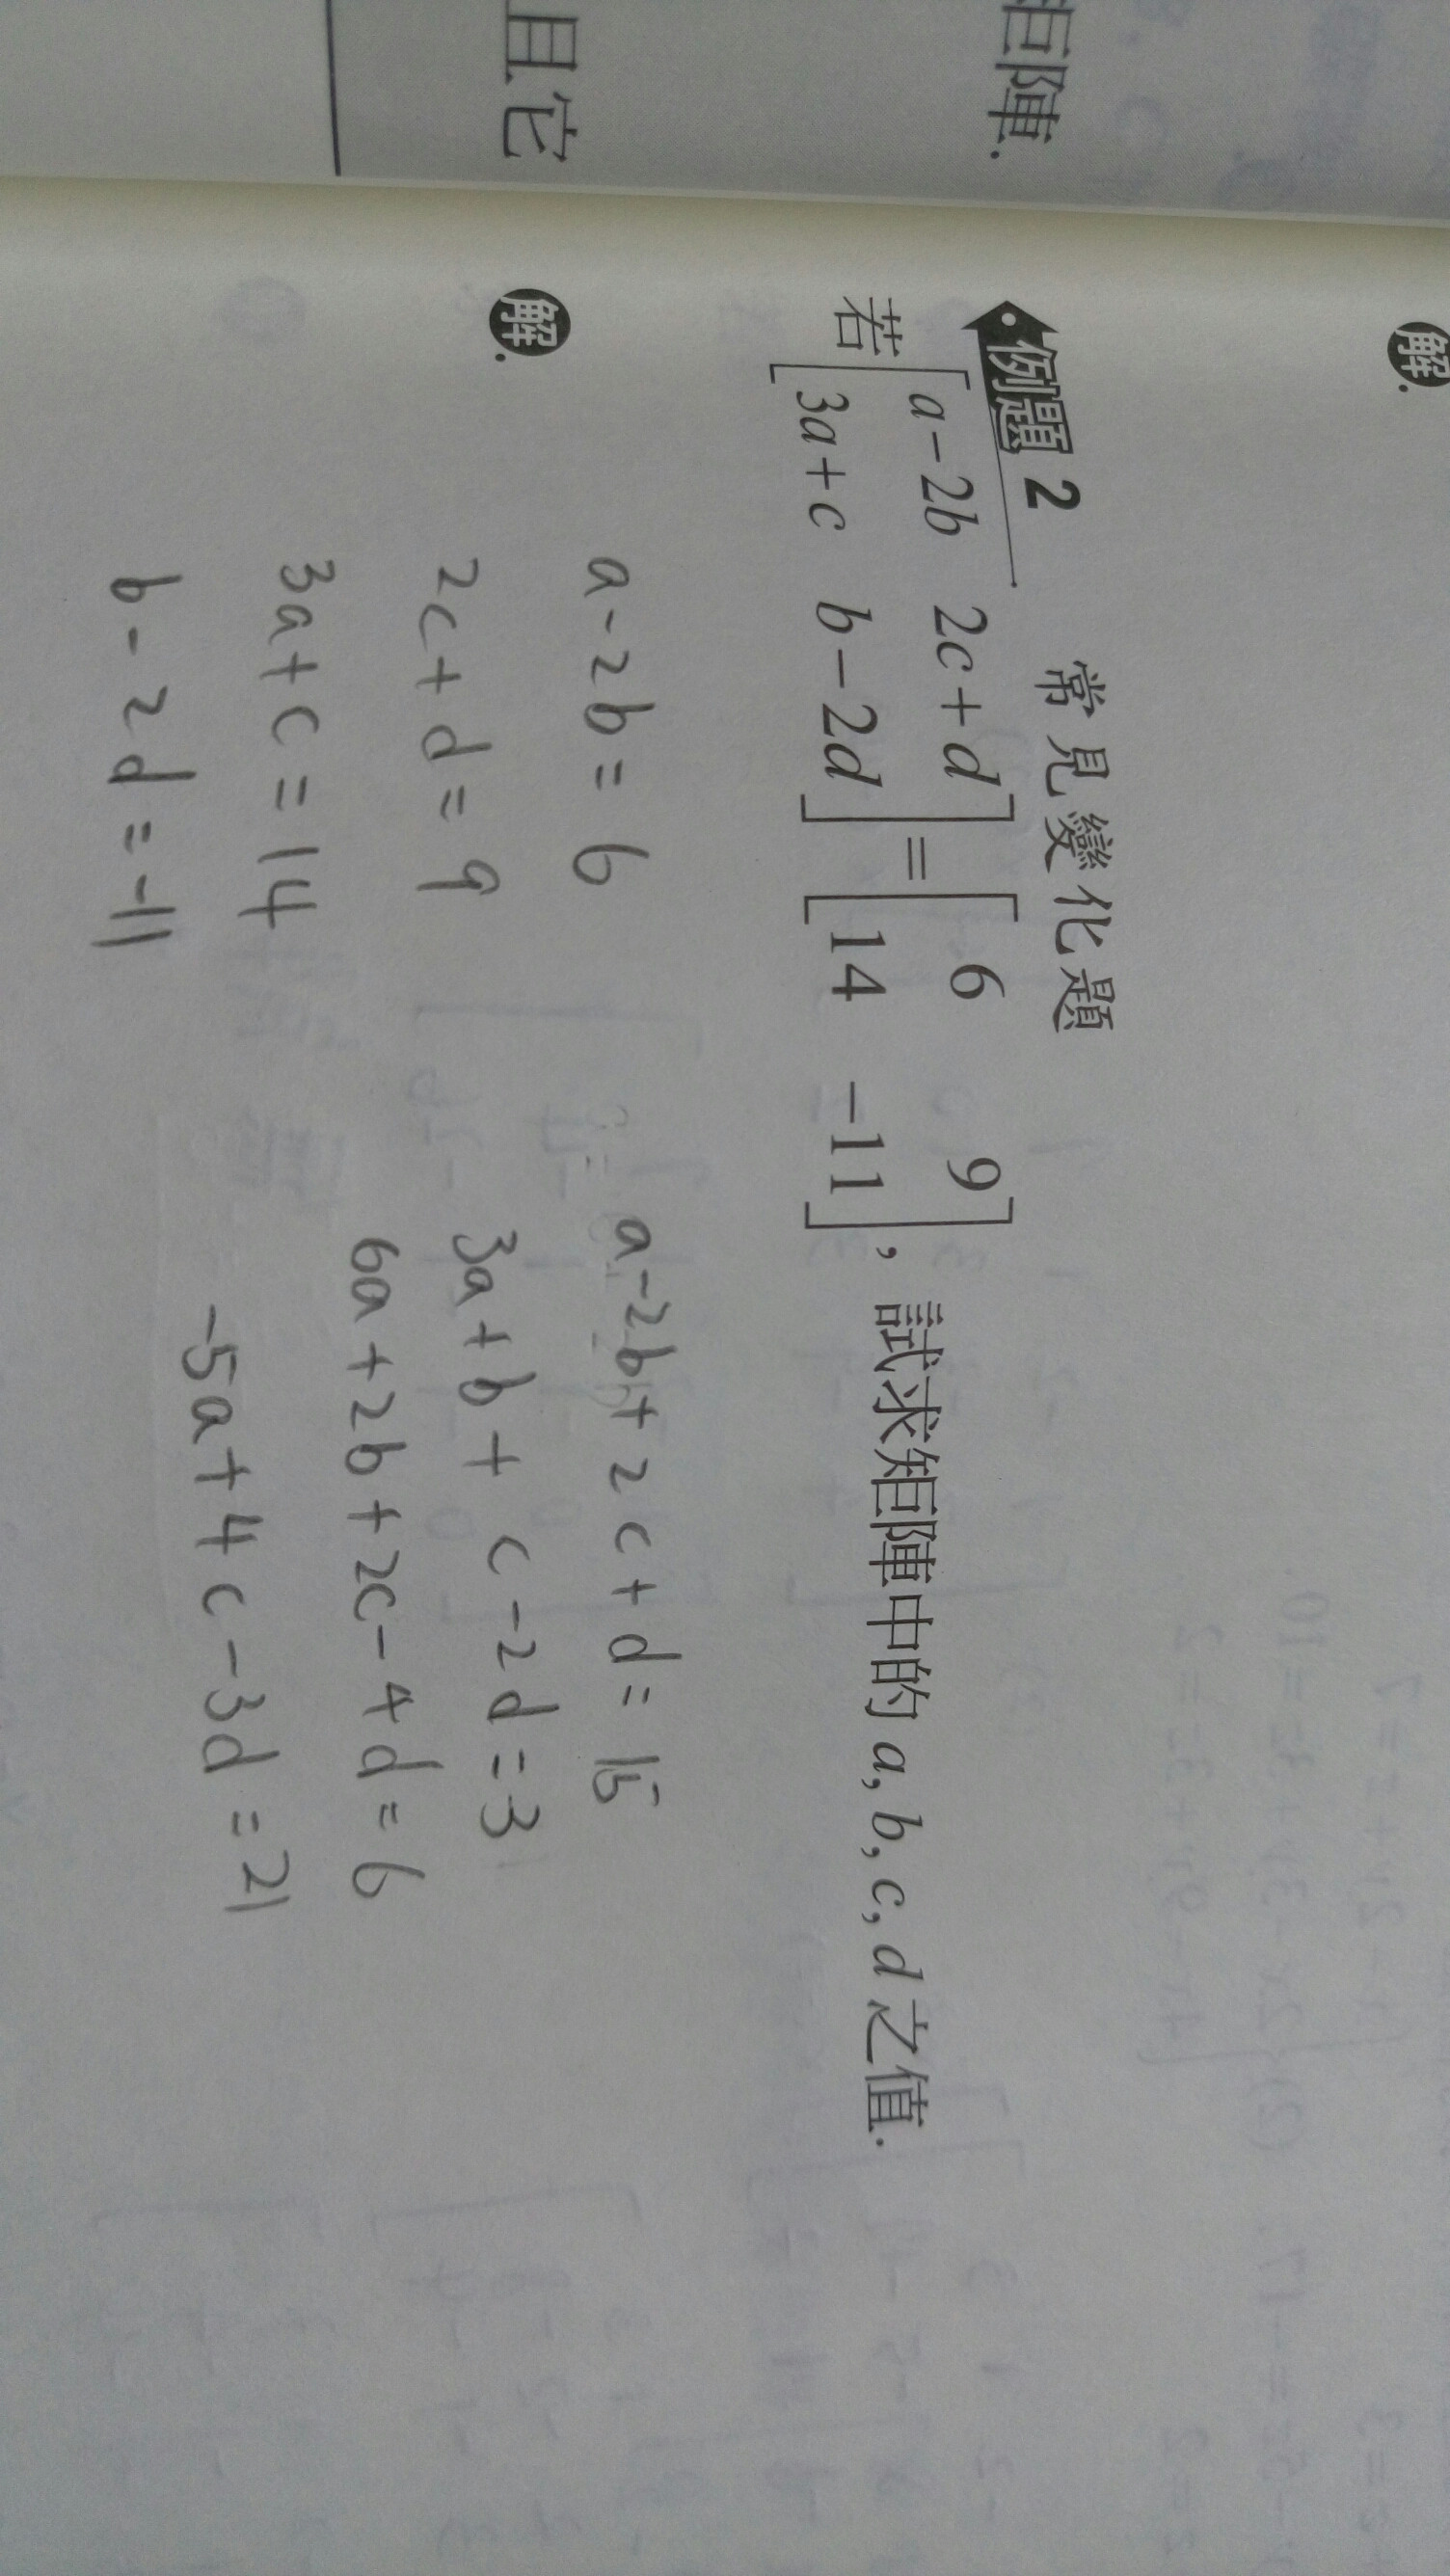 矩陣.
且它
解.
例題 2 常見變化題
若[a-2b 2c+d
3a+c b-2d]=[6 9
14 -11], 試求矩陣中的 a, b, c, d 之值.
解.
a-2b=6
2c+d=9
3a+c=14
b-2d=-11
a-2b+2c+d=15
3a+b+c-2d=3
6a+2b+2c-4d=6
-5a+4c-3d=21